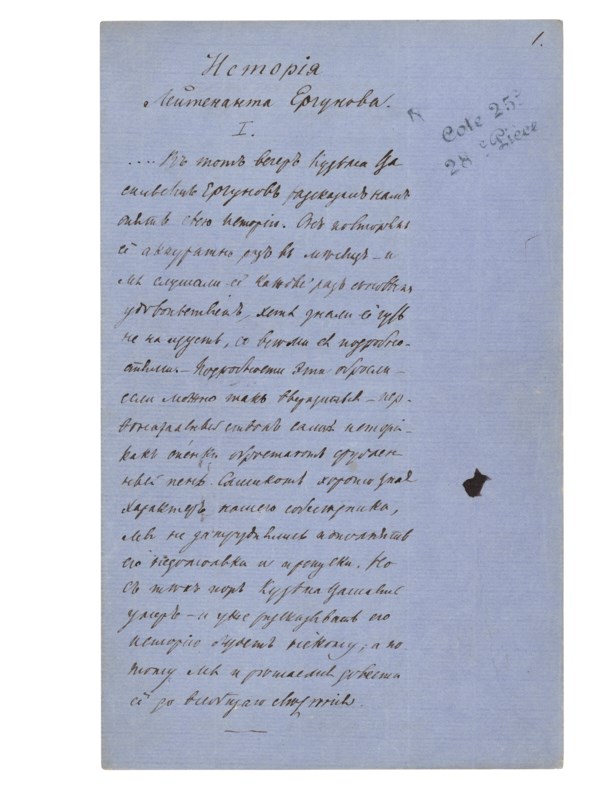 1.
Исторія
Лейтенанта Ергунова.
I.
.... Въ тотъ вечеръ Кузьма Ва
сильевичъ Ергуновъ разсказалъ намъ
опять свою исторію. Онъ повторялъ
её аккуратно разъ въ мѣсяцъ – и
мы слушали её каждый разъ съ новымъ
удовольствіемъ, хотя знали её чуть
не наизусть, со всѣми её подробно-
стями. – Подробности эти обросли –
если можно такъ выразиться – пер-
воначальный стволъ самой исторіи –
какъ опёнки обростаютъ срублен
ный пень. Слишкомъ хорошо зная
характеръ нашего собесѣдника,
мы не затруднялись пополнять
его недомолвки и пропуски. Но
съ тѣхъ поръ Кузьма Васильевичъ
умеръ – и уже разсказывать его
исторію будетъ некому; а по-
тому мы и рѣшаемся довести
её до всеобщаго свѣдѣнія.
Cote 25e
28e Pièce